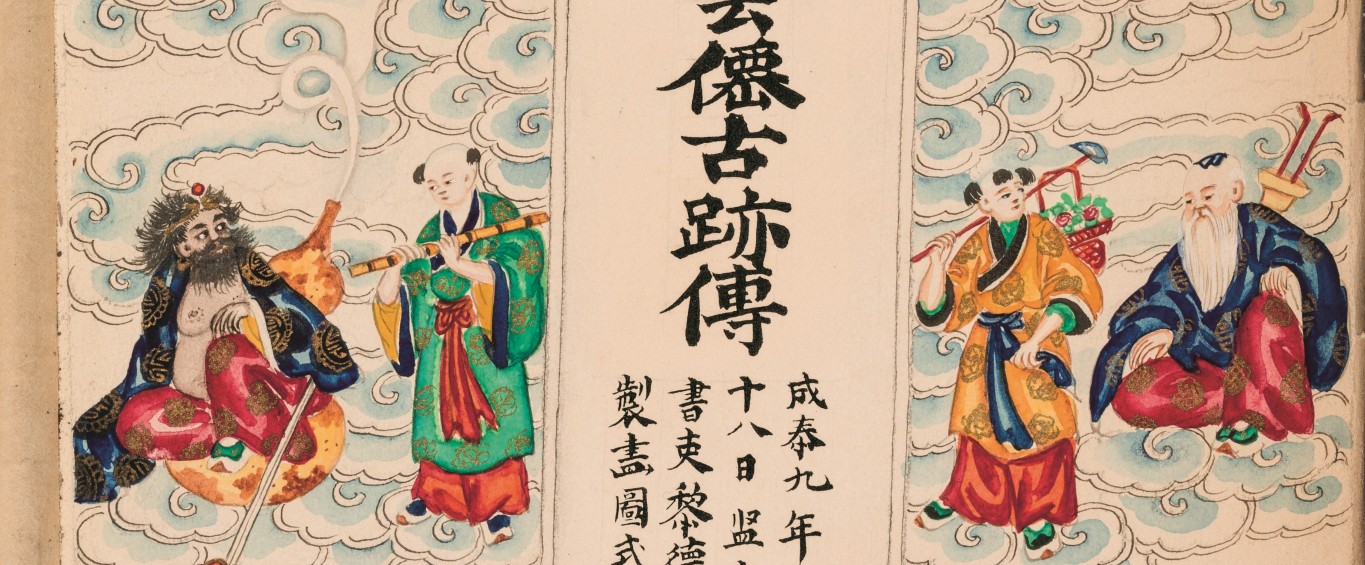 雲僊古跡傳
成泰九年
十八日监
書吏黎德
製畫圖式